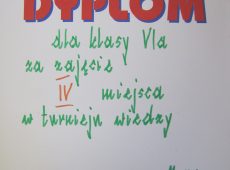 DYPLOM
dla klasy VIa
za zajęcie
IV miejsca
w turnieju wiedzy